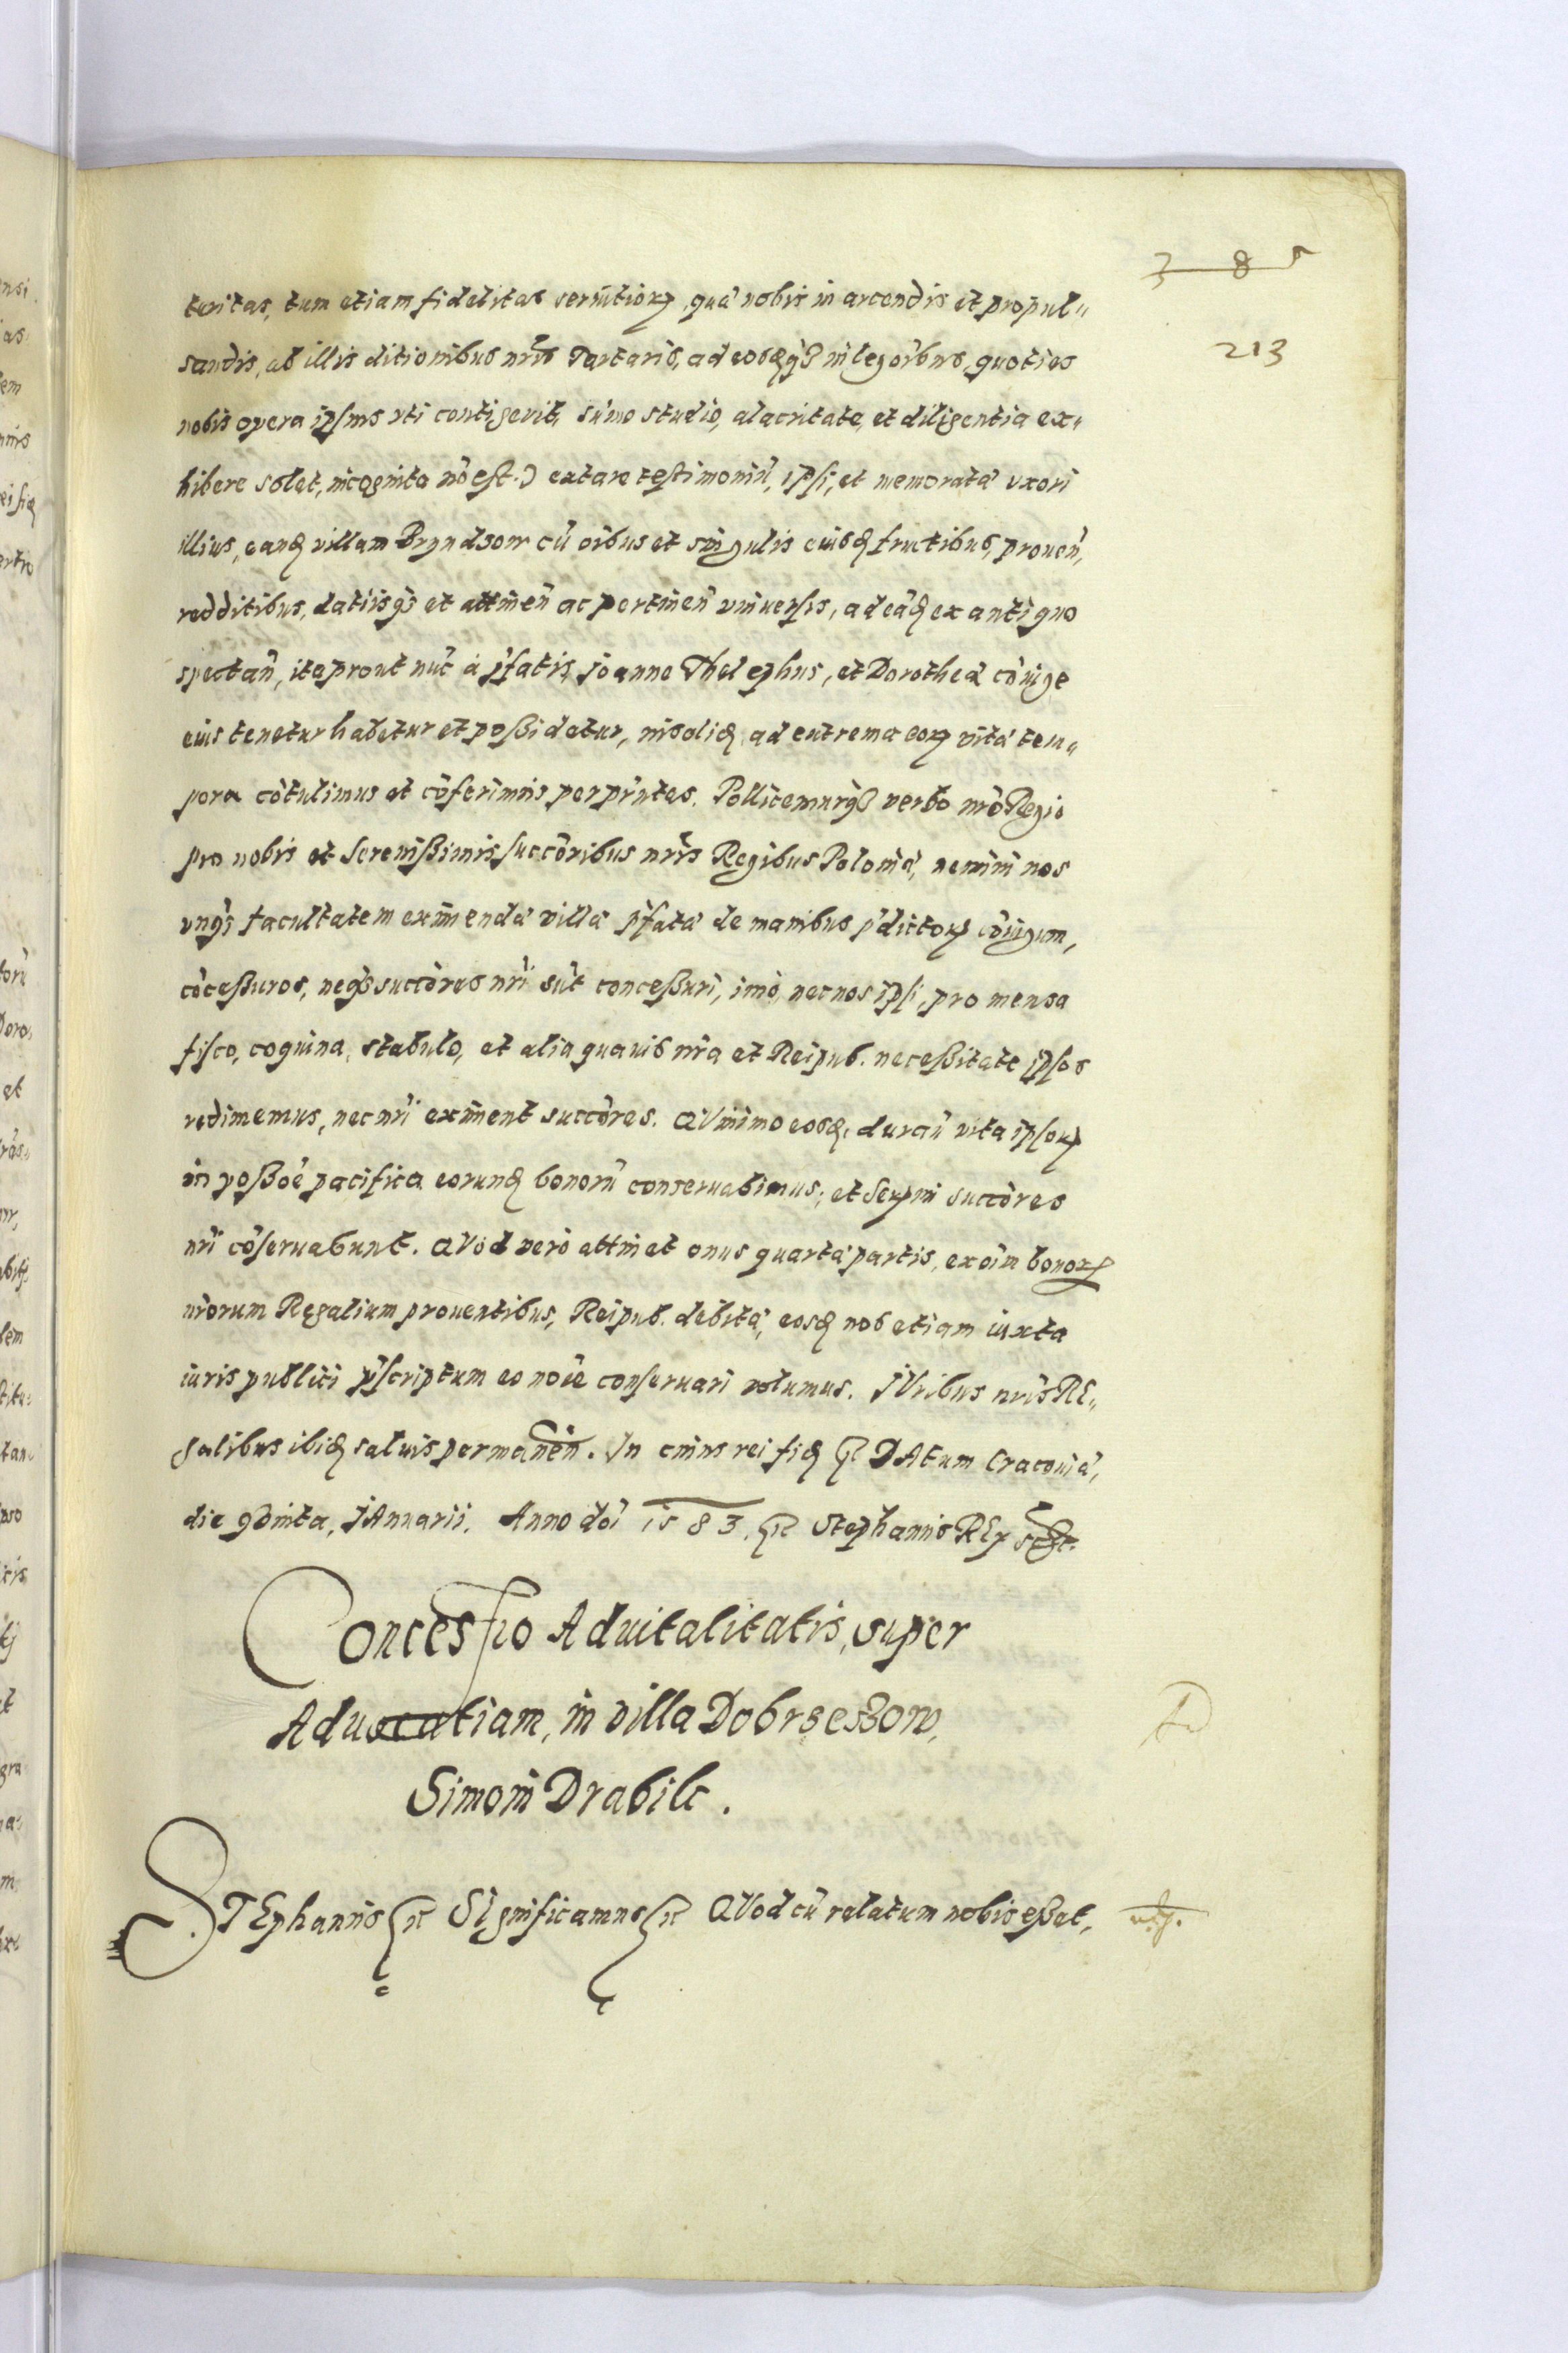 385
213
teritas, tum etiam fidelitas servitiorꝝ, quã nobis in arcendis et propul„
sandis, ab illis ditionibus nrĩs Tartaris, ad eosq́ꝫ in legoĩbus, quoties
nobis opera ipsius vti contigerit, sũmo studio, alacritate, et diligentia ex„
hibere solet, incognita nõ est.) extare testimoniũ, ipsi, et memoratã vxori
illius, eanđ villam Bryndzow cũ oĩbus et singulis eiusđ fructibus, prouen̄,
redditibus, datiisq́ꝫ et attinen̄ ac pertinen̄ vniuersis, ad eãđ ex antiquo
spectan̄, ita prout nũc à p̃fatis Joanne Thelephus, et Dorotheã cõiuge
eius tenetur habetur et poßidetur, ad extrema eorꝝ vitã tem„
pora cõtulimus et cõferimus per p̃ntes. Pollicemurq́ꝫ verbo nrõ Regio
pro nobis et Serenißimis succõribus nrĩs Regibus Poloniã, nemini nos
vnq̃ facultatem eximendã villã p̃fatã de manibus p̃dictorꝝ cõiugum,
cõceßuros, neq́ꝫ succõres nrĩ sũt conceßuri, imò, nec nos ipsi, pro mensa
fisco, coquina, stabulo, et alia quauis nrã et Reipub. neceßitate ipsos
redimemus, nec nrĩ eximent succõres. QVinimo eosđ, durañ vita ipsorꝝ
in poßoẽ pacifica eorunđ bonorũ conseruabimus, et Serꝝmi succõres
nrĩ cõseruabunt. QVod verò attinet onus quartã partis, ex oĩm bonorꝝ
nrõrum Regalium prouentibus, Reipub. debitã, eosđ nos etiam iuxta
iuris publici p̃scriptum eo noĩe conseruari volumus. JVribus nrĩs RE„
galibus ibiđ saluis permanen̄. In cuius rei fiđ ꝛc DAtum Cracouiã,
die qVinta, JAnuarii. Anno doĩ 1583. ꝛc Stephanus REx sst.
Concessio Aduitalitatis, super
Aduocatiam, in villa Dobrzeszow,
Simoni Drabik.
STEphanus ꝛc SIgnificamus ꝛc QVod cũ relatum nobis eßet,